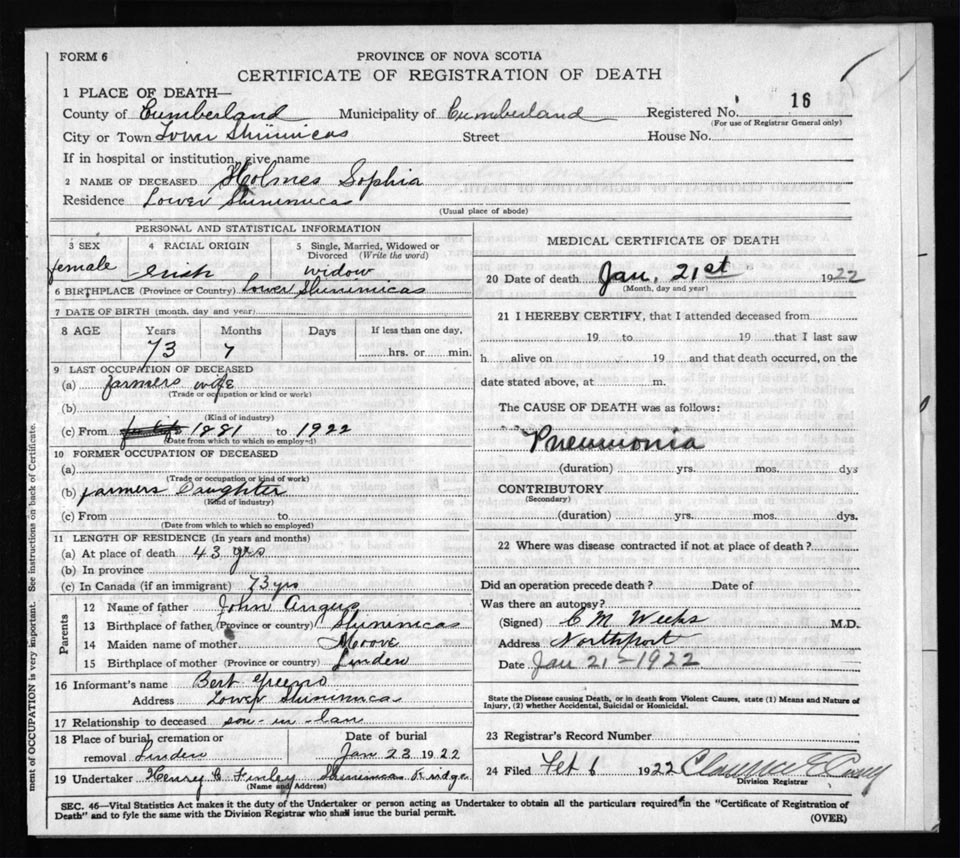 FORM 6
PROVINCE OF NOVA SCOTIA
CERTIFICATE OF REGISTRATION OF DEATH
1 PLACE OF DEATH—
County of Cumberland Municipality of Cumberland Registered No. 16
(For use of Registrar General only)
City or Town Lower Shinimicas Street House No.
If in hospital or institution, give name
2 NAME OF DECEASED Holmes Sophia
Residence Lower Shinimicas
(Usual place of abode)
PERSONAL AND STATISTICAL INFORMATION
3 SEX 4 RACIAL ORIGIN 5 Single, Married, Widowed or Divorced (Write the word)
female Irish widow
6 BIRTHPLACE (Province or Country) Lower Shinimicas
7 DATE OF BIRTH (month, day and year)
8 AGE Years Months Days If less than one day,
73 7 hrs. or min.
9 LAST OCCUPATION OF DECEASED
(a) farmers wife
(Trade or occupation or kind or work)
(b)
(Kind of industry)
(c) From 1881 to 1922
(Date from which to which so employed)
10 FORMER OCCUPATION OF DECEASED
(a)
(Trade or occupation or kind of work)
(b) farmers Daughter
(Kind of industry)
(c) From to
(Date from which to which so employed)
11 LENGTH OF RESIDENCE (In years and months)
(a) At place of death 43 yrs
(b) In province
(c) In Canada (if an immigrant) 73 yrs
Parents
12 Name of father John Angus
13 Birthplace of father (Province or country) Shinimicas
14 Maiden name of mother Moore
15 Birthplace of mother (Province or country) Linden
16 Informant's name Bert Greeno
Address Lower Shinimica
17 Relationship to deceased son-in-law
18 Place of burial, cremation or removal Linden Date of burial Jan 23 1922
19 Undertaker Henry C Finley Shinimicas Ridge
(Name and Address)
MEDICAL CERTIFICATE OF DEATH
20 Date of death Jan. 21st 1922
(Month, day and year)
21 I HEREBY CERTIFY, that I attended deceased from
19 to 19 that I last saw
h alive on 19 and that death occurred, on the
date stated above, at m.
The CAUSE OF DEATH was as follows:
Pneumonia
(duration) yrs. mos. dys
CONTRIBUTORY
(Secondary)
(duration) yrs. mos. dys.
22 Where was disease contracted if not at place of death?
Did an operation precede death? Date of
Was there an autopsy?
(Signed) C M Weeks M.D.
Address Northport
Date Jan 21-1922
State the Disease causing Death, or in death from Violent Causes, state (1) Means and Nature of
Injury, (2) whether Accidental, Suicidal or Homicidal.
23 Registrar's Record Number
24 Filed Feb 6 1922 Clarence E
Division Registrar
SEC. 46—Vital Statistics Act makes it the duty of the Undertaker or person acting as Undertaker to obtain all the particulars required in the "Certificate of Registration of
Death" and to fyle the same with the Division Registrar who shall issue the burial permit.
(OVER)
ment of OCCUPATION is very important. See instructions on back of Certificate.